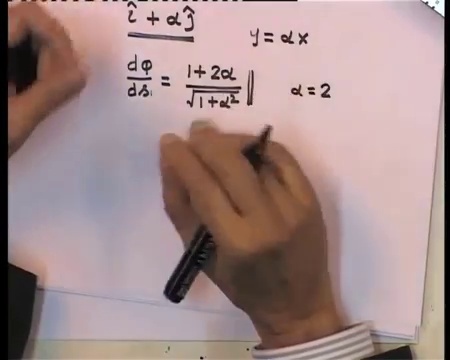 î + αĵ
y = αx
dφ/ds = (1 + 2α)/√(1 + α²)
α = 2